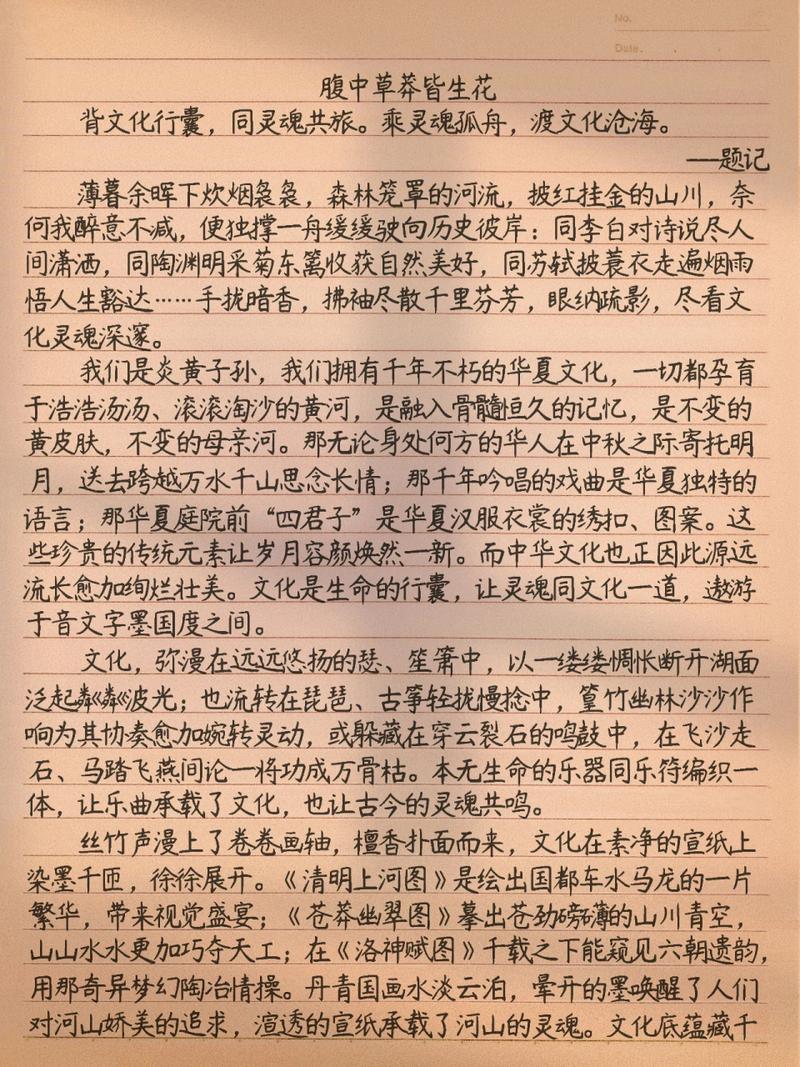 No.
Date.
腹中草莽皆生花
背文化行囊，同灵魂共旅。乘灵魂孤舟，渡文化沧海。
——题记
薄暮余晖下炊烟袅袅，森林笼罩的河流，披红挂金的山川，奈
何我醉意不减，便独撑一舟缓缓驶向历史彼岸：同李白对诗说尽人
间潇洒，同陶渊明采菊东篱收获自然美好，同苏轼披蓑衣走遍烟雨
悟人生豁达……手拢暗香，拂袖尽散千里芬芳，眼纳疏影，尽看文
化灵魂深邃。
我们是炎黄子孙，我们拥有千年不朽的华夏文化，一切都孕育
于浩浩汤汤、滚滚淘沙的黄河，是融入骨髓恒久的记忆，是不变的
黄皮肤，不变的母亲河。那无论身处何方的华人在中秋之际寄托明
月，送去跨越万水千山思念长情；那千年吟唱的戏曲是华夏独特的
语言；那华夏庭院前“四君子”是华夏汉服衣裳的绣扣、图案。这
些珍贵的传统元素让岁月容颜焕然一新。而中华文化也正因此源远
流长愈加绚烂壮美。文化是生命的行囊，让灵魂同文化一道，遨游
于音文字墨国度之间。
文化，弥漫在远远悠扬的瑟、笙箫中，以一缕缕惆怅断开湖面
泛起粼粼波光；也流转在琵琶、古筝轻拢慢捻中，篁竹幽林沙沙作
响为其协奏愈加婉转灵动，或躲藏在穿云裂石的鸣鼓中，在飞沙走
石、马踏飞燕间论一将功成万骨枯。本无生命的乐器同乐符编织一
体，让乐曲承载了文化，也让古今的灵魂共鸣。
丝竹声漫上了卷卷画轴，檀香扑面而来，文化在素净的宣纸上
染墨千匝，徐徐展开。《清明上河图》是绘出国都车水马龙的一片
繁华，带来视觉盛宴；《苍莽幽翠图》摹出苍劲磅礴的山川青空，
山山水水更加巧夺天工；在《洛神赋图》千载之下能窥见六朝遗韵，
用那奇异梦幻陶冶情操。丹青国画水淡云泊，晕开的墨唤醒了人们
对河山娇美的追求，渲透的宣纸承载了河山的灵魂。文化底蕴藏千